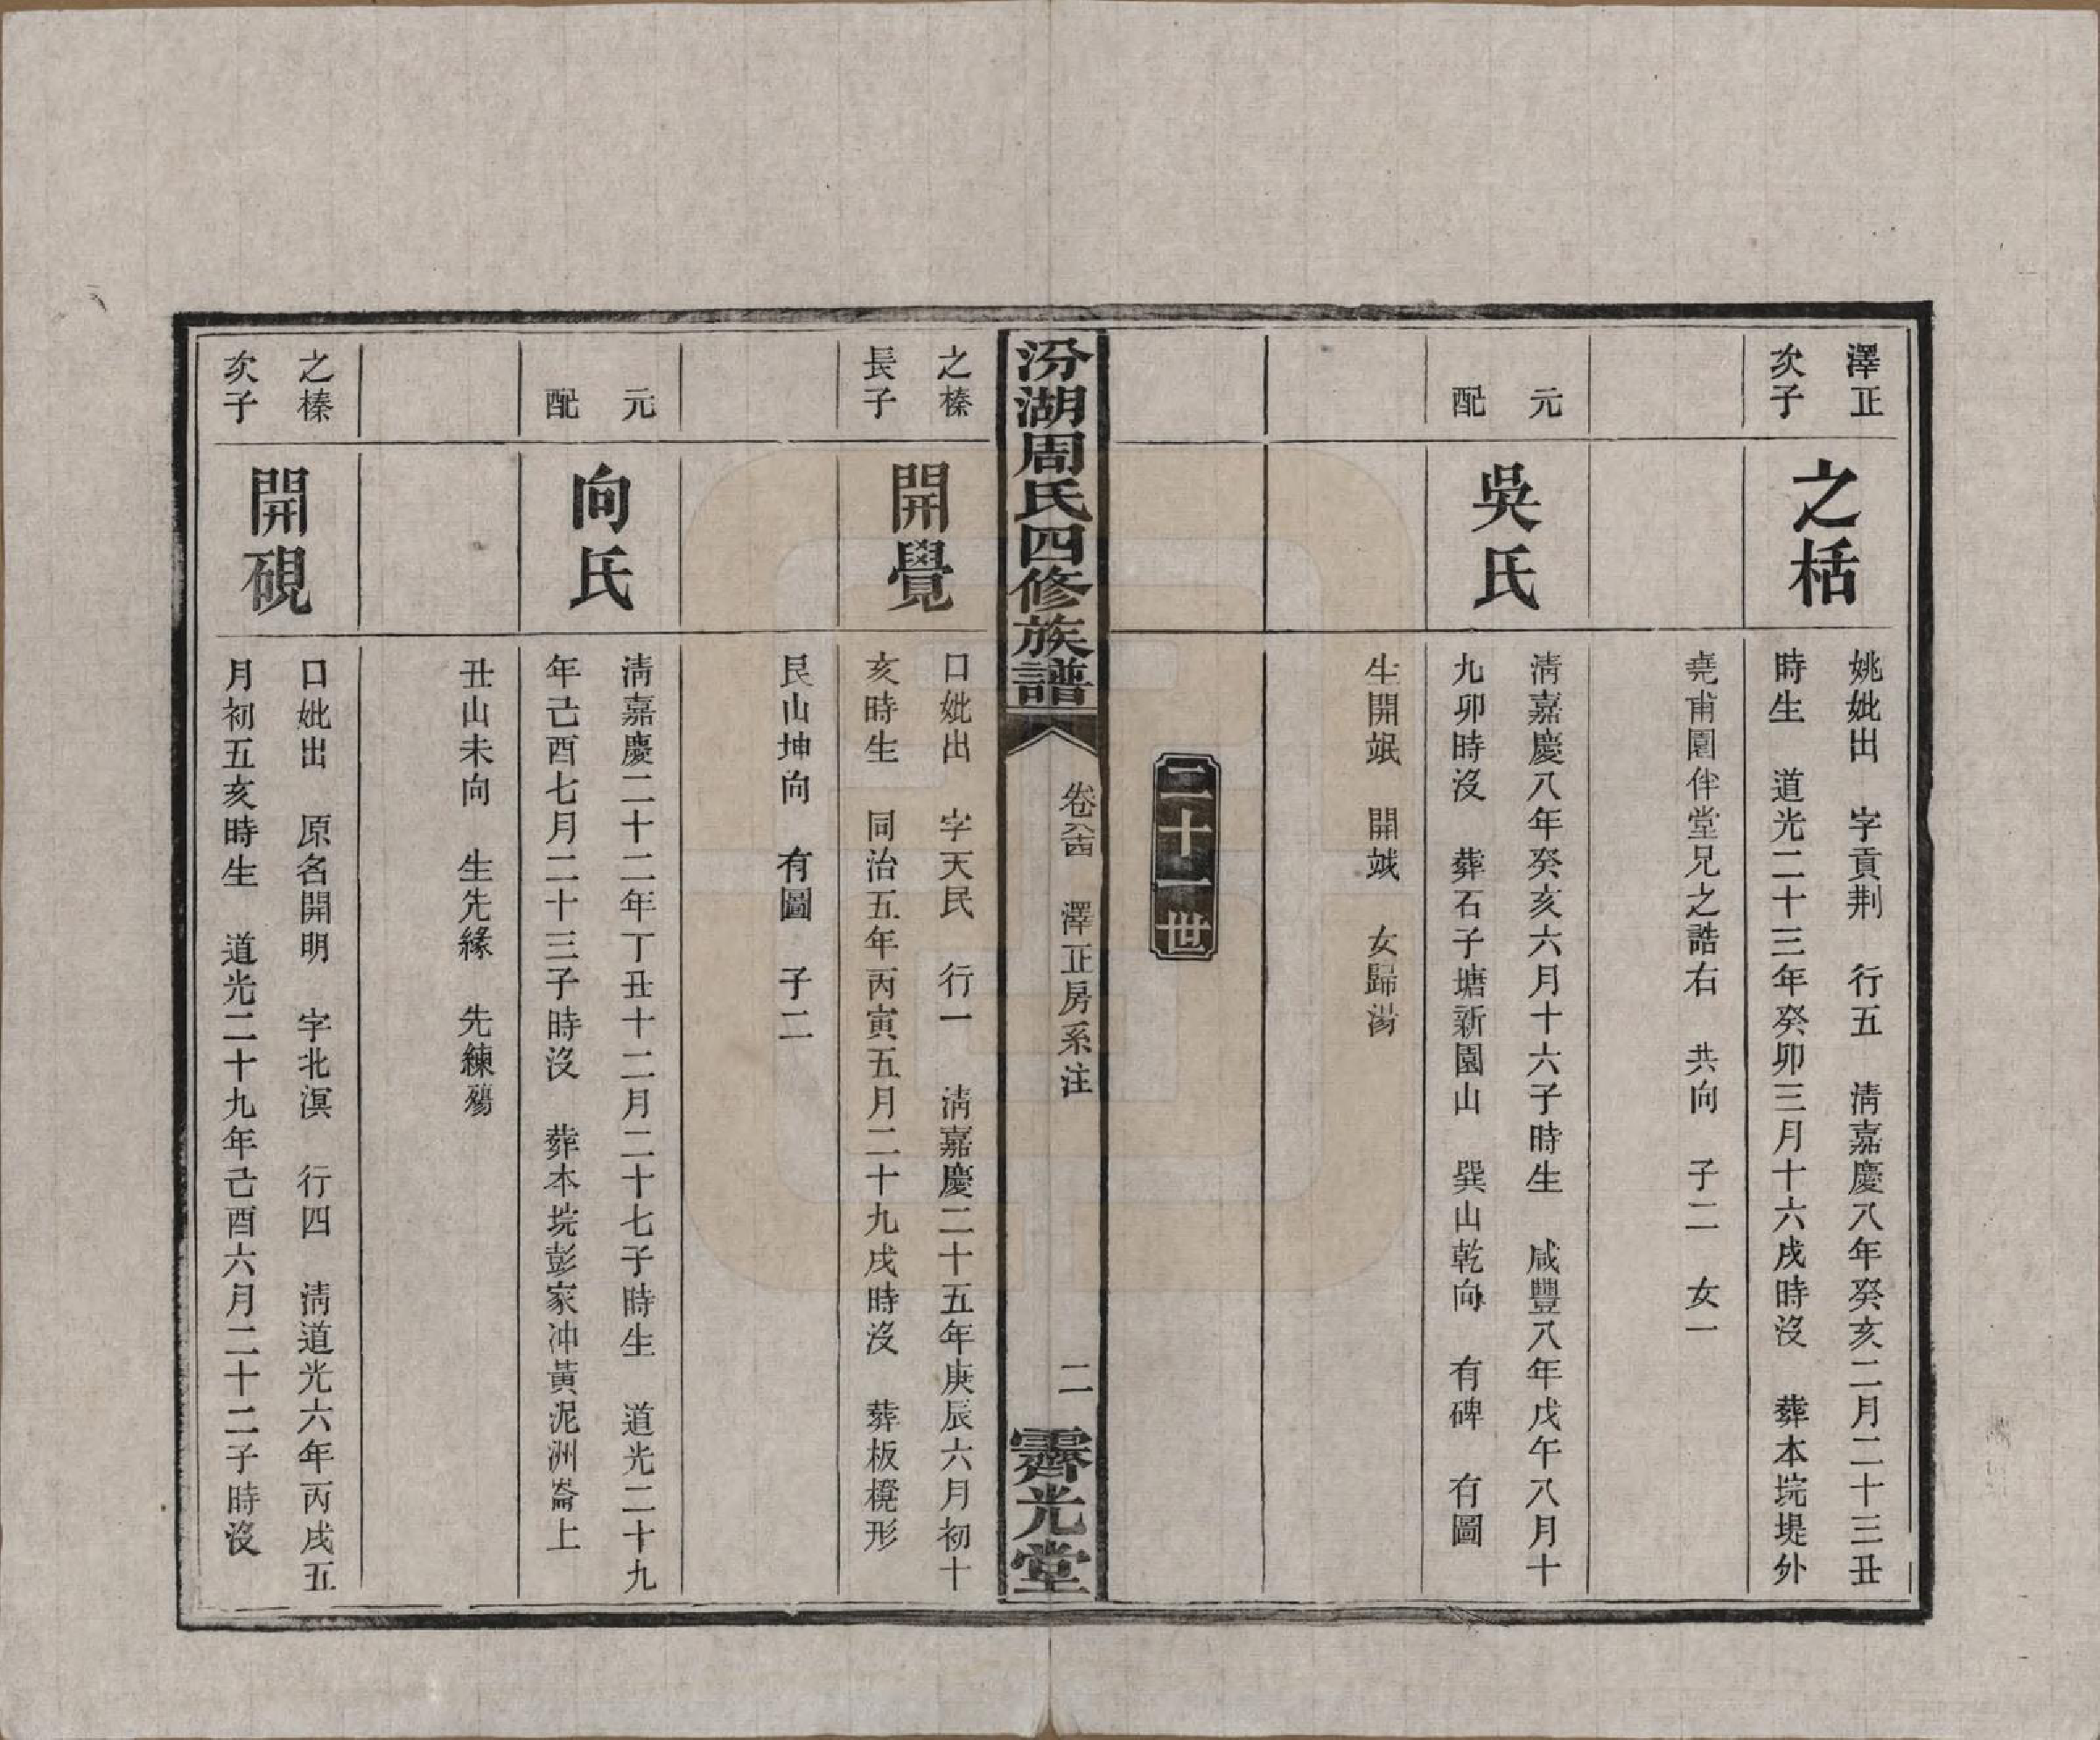 澤正
次子
之栝
姚妣出　字貢荆　行五　淸嘉慶八年癸亥二月二十三丑
時生　道光二十三年癸卯三月十六戌時沒　葬本垸堤外
堯甫園伴堂兄之誥右　共向　子二　女一
元
配
吳氏
淸嘉慶八年癸亥六月十六子時生　咸豐八年戊午八月十
九卯時沒　葬石子塘新園山　巽山乾向　有碑　有圖
生開㟭　開䧕　女歸湯
二十一世
汾湖周氏四修族譜
卷六十四　澤正房系注
二
霽光堂
之榛
長子
開覺
口妣出　字天民　行一　淸嘉慶二十五年庚辰六月初十
亥時生　同治五年丙寅五月二十九戌時沒　葬板櫈形
艮山坤向　有圖　子二
元
配
向氏
淸嘉慶二十二年丁丑十二月二十七子時生　道光二十九
年己酉七月二十三子時沒　葬本垸彭家冲黃泥洲崙上
丑山未向　生先緣　先練殤
之榛
次子
開硯
口妣出　原名開明　字北溟　行四　淸道光六年丙戌五
月初五亥時生　道光二十九年己酉六月二十二子時沒